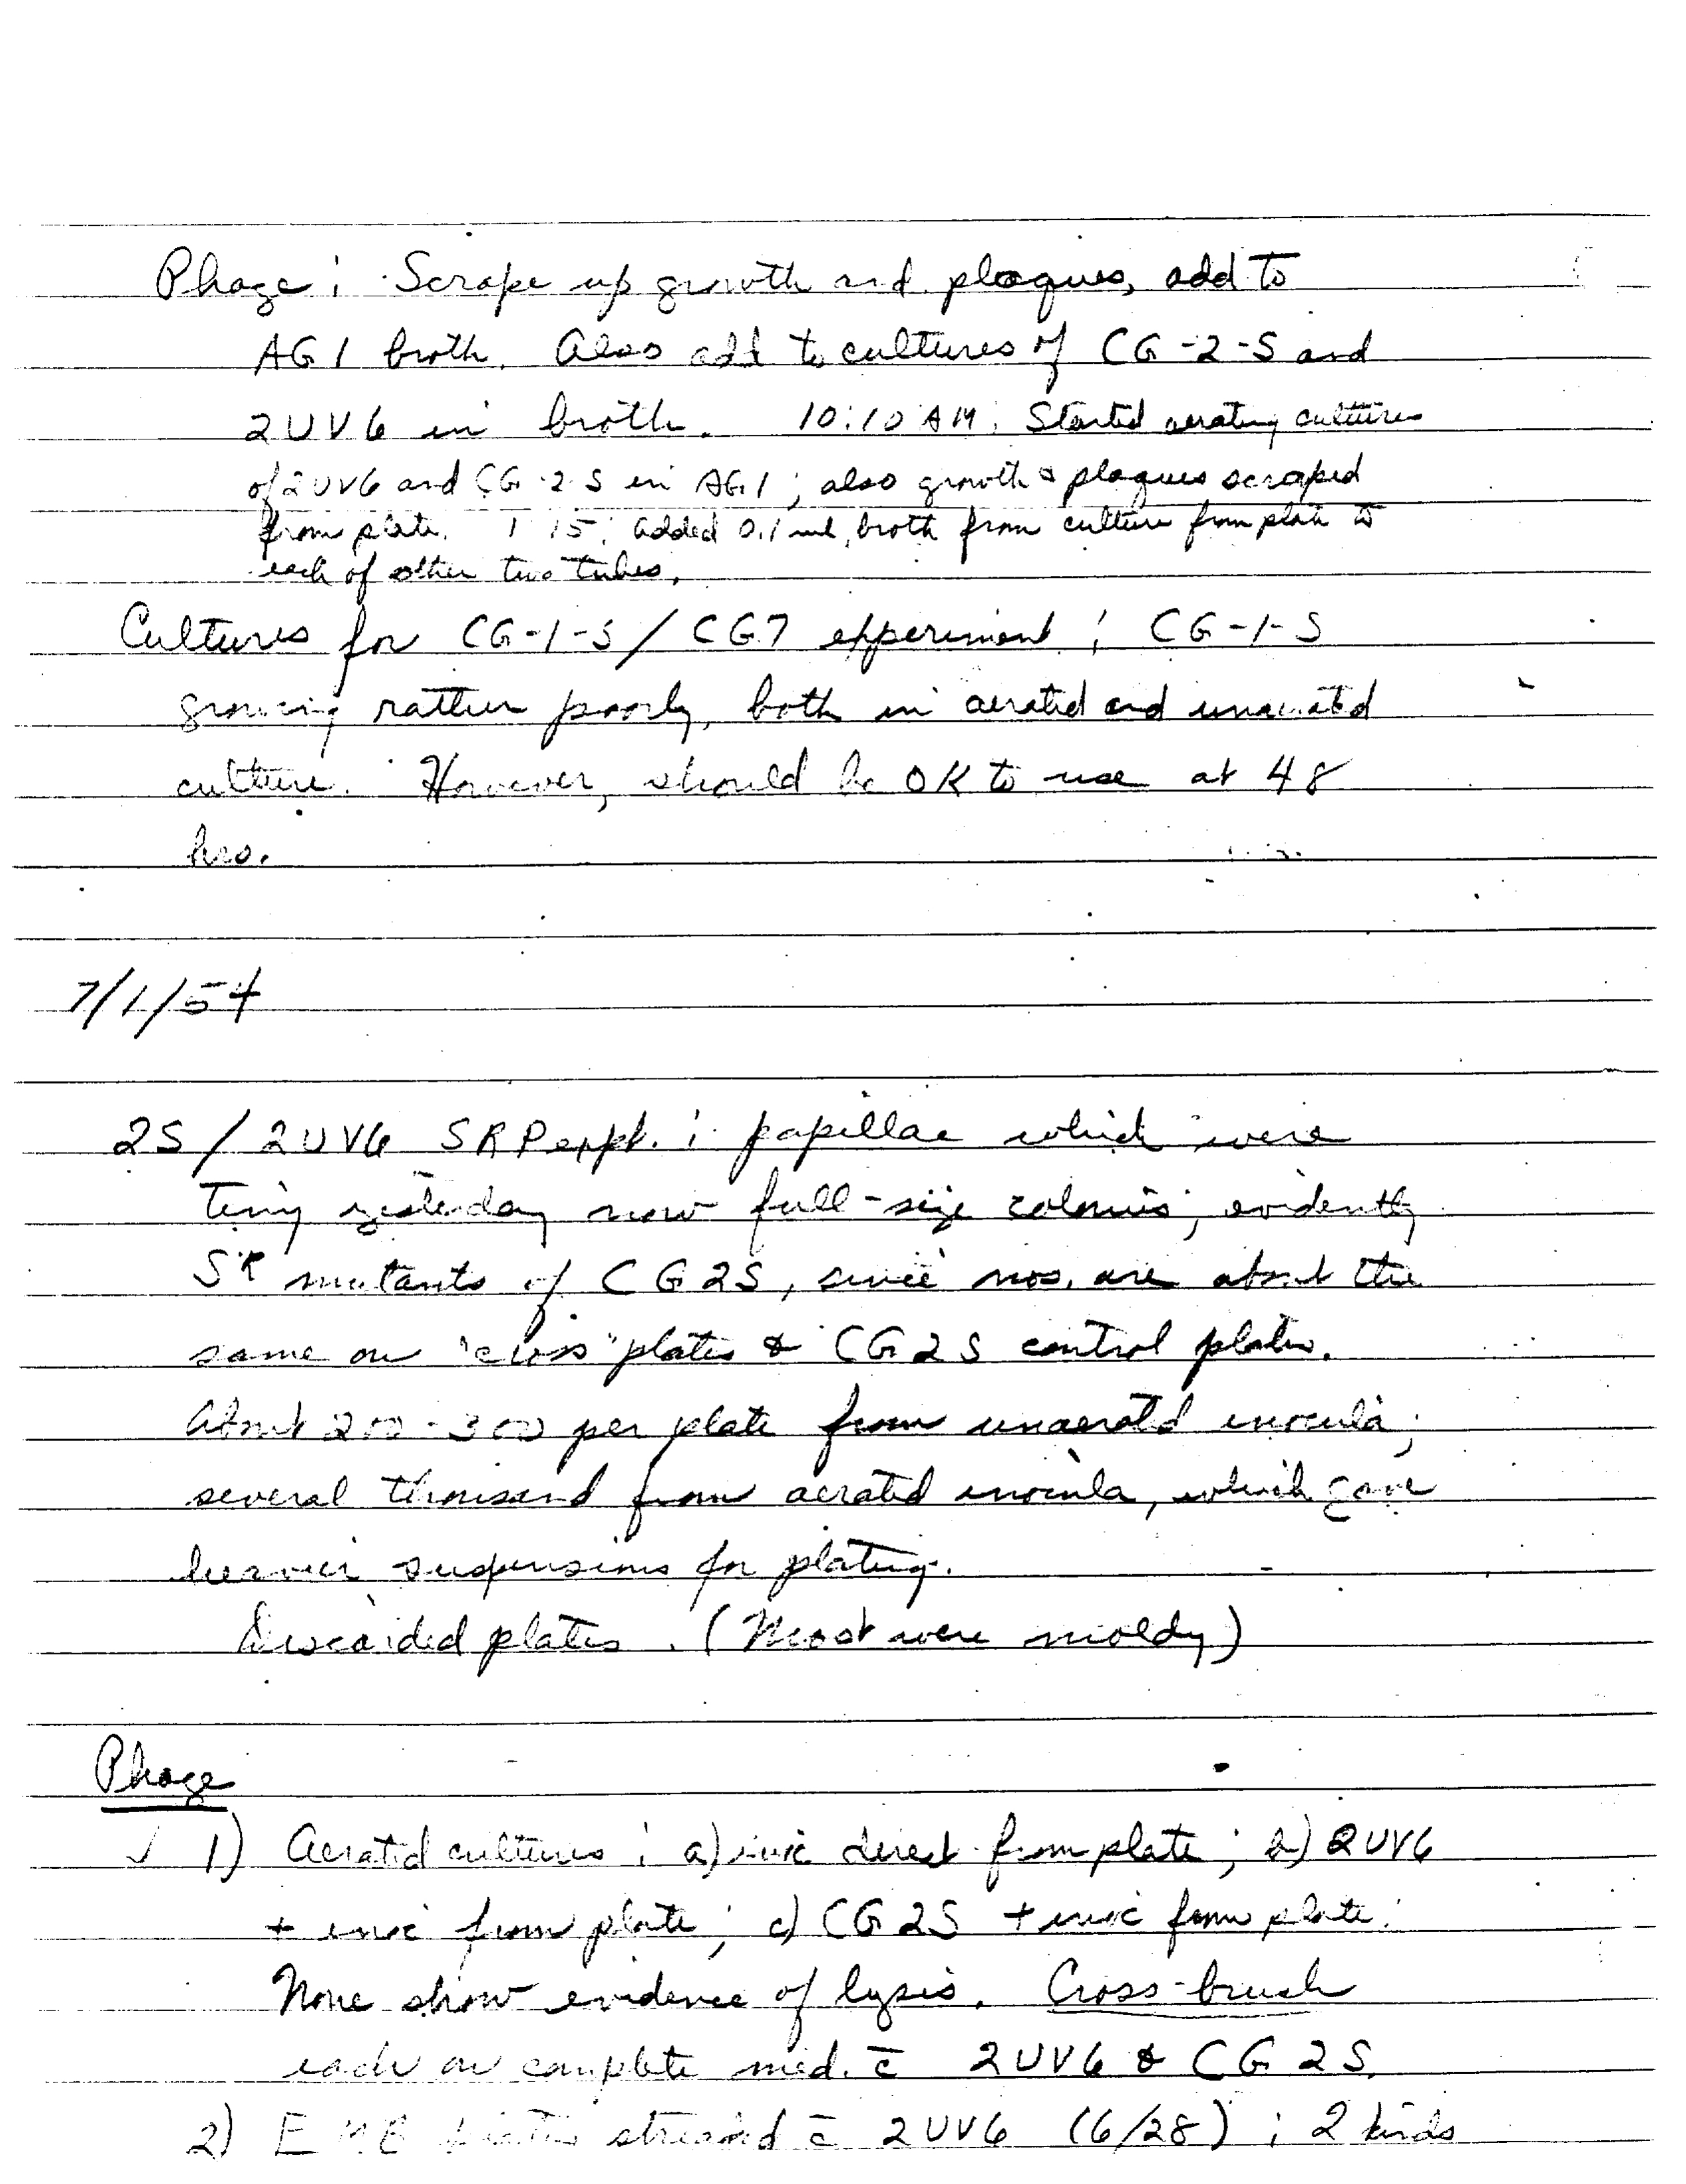 Phage: Scrape up growth and plaques, add to
AG1 broth. Also add to cultures of CG-2-S and
2UV6 in broth. 10:10 AM: Started aerating cultures
of 2UV6 and CG-2-S in AG1; also growth & plaques scraped
from plate. 1:15: added 0.1 ml. broth from culture from plate to
each of other two tubes.
Cultures for CG-1-S/CG7 experiment: CG-1-S
growing rather poorly, both in aerated and unaerated
culture. However, should be OK to use at 48
hrs.
7/1/54
2S/2UV6 SRP expt.: papillae which were
tiny yesterday now full-size colonies; evidently
SR mutants of CG2S, since nos. are about the
same on "cross" plates & CG2S control plates.
About 200-300 per plate from unaerated inocula;
several thousand from aerated inocula, which gave
heavier suspensions for plating.
Discarded plates. (Most were moldy)
Phage
✓ 1) Aerated cultures: a) inoc direct from plate; b) 2UV6
+ inoc from plate; c) CG2S + inoc from plate.
None show evidence of lysis. Cross-brush
each on complete med. c̄ 2UV6 & CG2S.
2) EMB plates streaked c̄ 2UV6 (6/28): 2 kinds